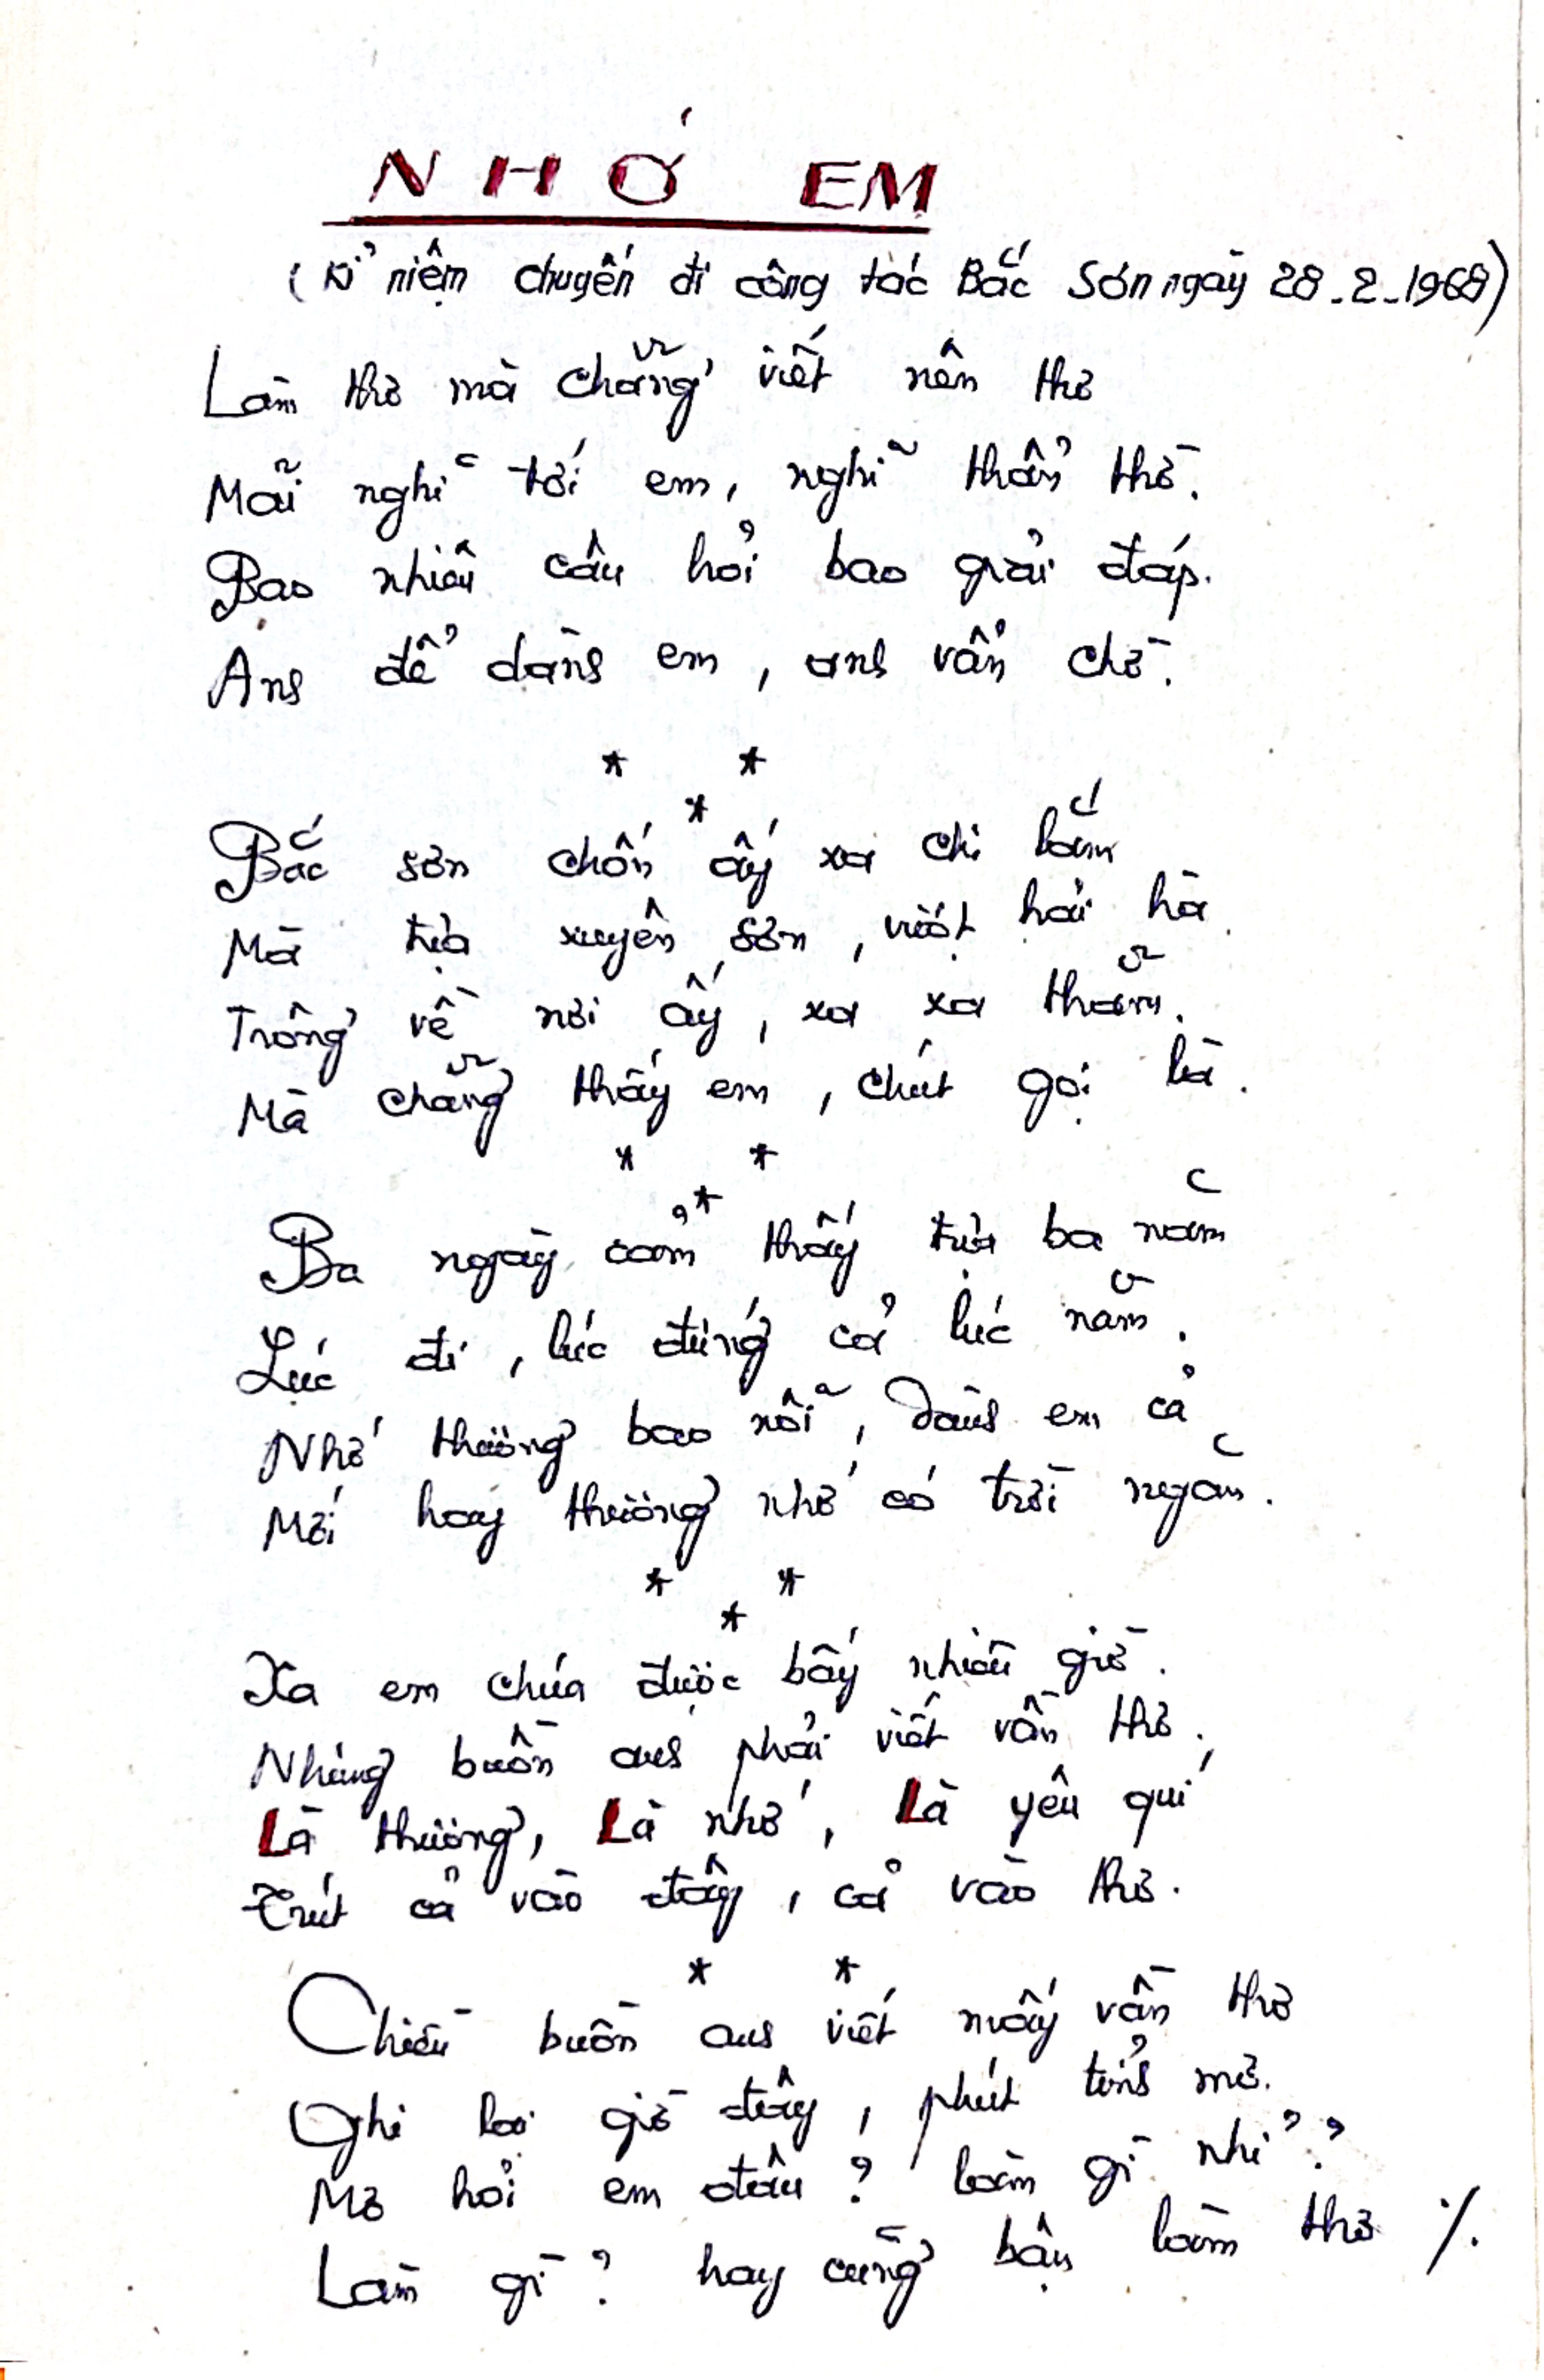 NHỚ EM
(Kỉ niệm chuyến đi công tác Bắc Sơn ngày 28-2-1968)
Làm thơ mà chẳng viết nên thơ
Mãi nghĩ tới em, nghĩ thẩn thờ.
Bao nhiêu câu hỏi bao giải đáp.
Anh để dành em, anh vẩn chờ.
* *
*
Bắc sơn chốn ấy xa chi lắm
Mà tựa xuyên sơn, vượt hải hà.
Trông về nơi ấy, xa xa thẳm.
Mà chẳng thấy em, chút gọi là.
* *
*
Ba ngày cảm thấy tựa ba năm
Lúc đi, lúc đứng cả lúc nằm.
Nhớ thương bao nỗi, dành em cả
Mới hay thương nhớ có trời ngăn.
* *
*
Xa em chưa được bấy nhiêu giờ.
Nhưng buồn anh phải viết vần thơ.
Là thương, Là nhớ, Là yêu quí
Trút cả vào đây, cả vào thơ.
* *
Chiều buồn anh viết mấy vần thơ
Ghi lại giờ đây, phút tỉnh mơ.
Mơ hỏi em đâu? làm gì nhỉ?
Làm gì? hay cũng bận làm thơ ./.